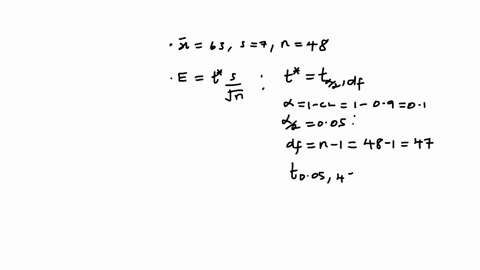 · x̄ = 63, s=7, n = 48
· E = t* s/√n : t* = tα/2, df
α = 1-CL = 1-0.9 = 0.1
α/2 = 0.05 :
df = n-1 = 48-1 = 47
t0.05, 4-